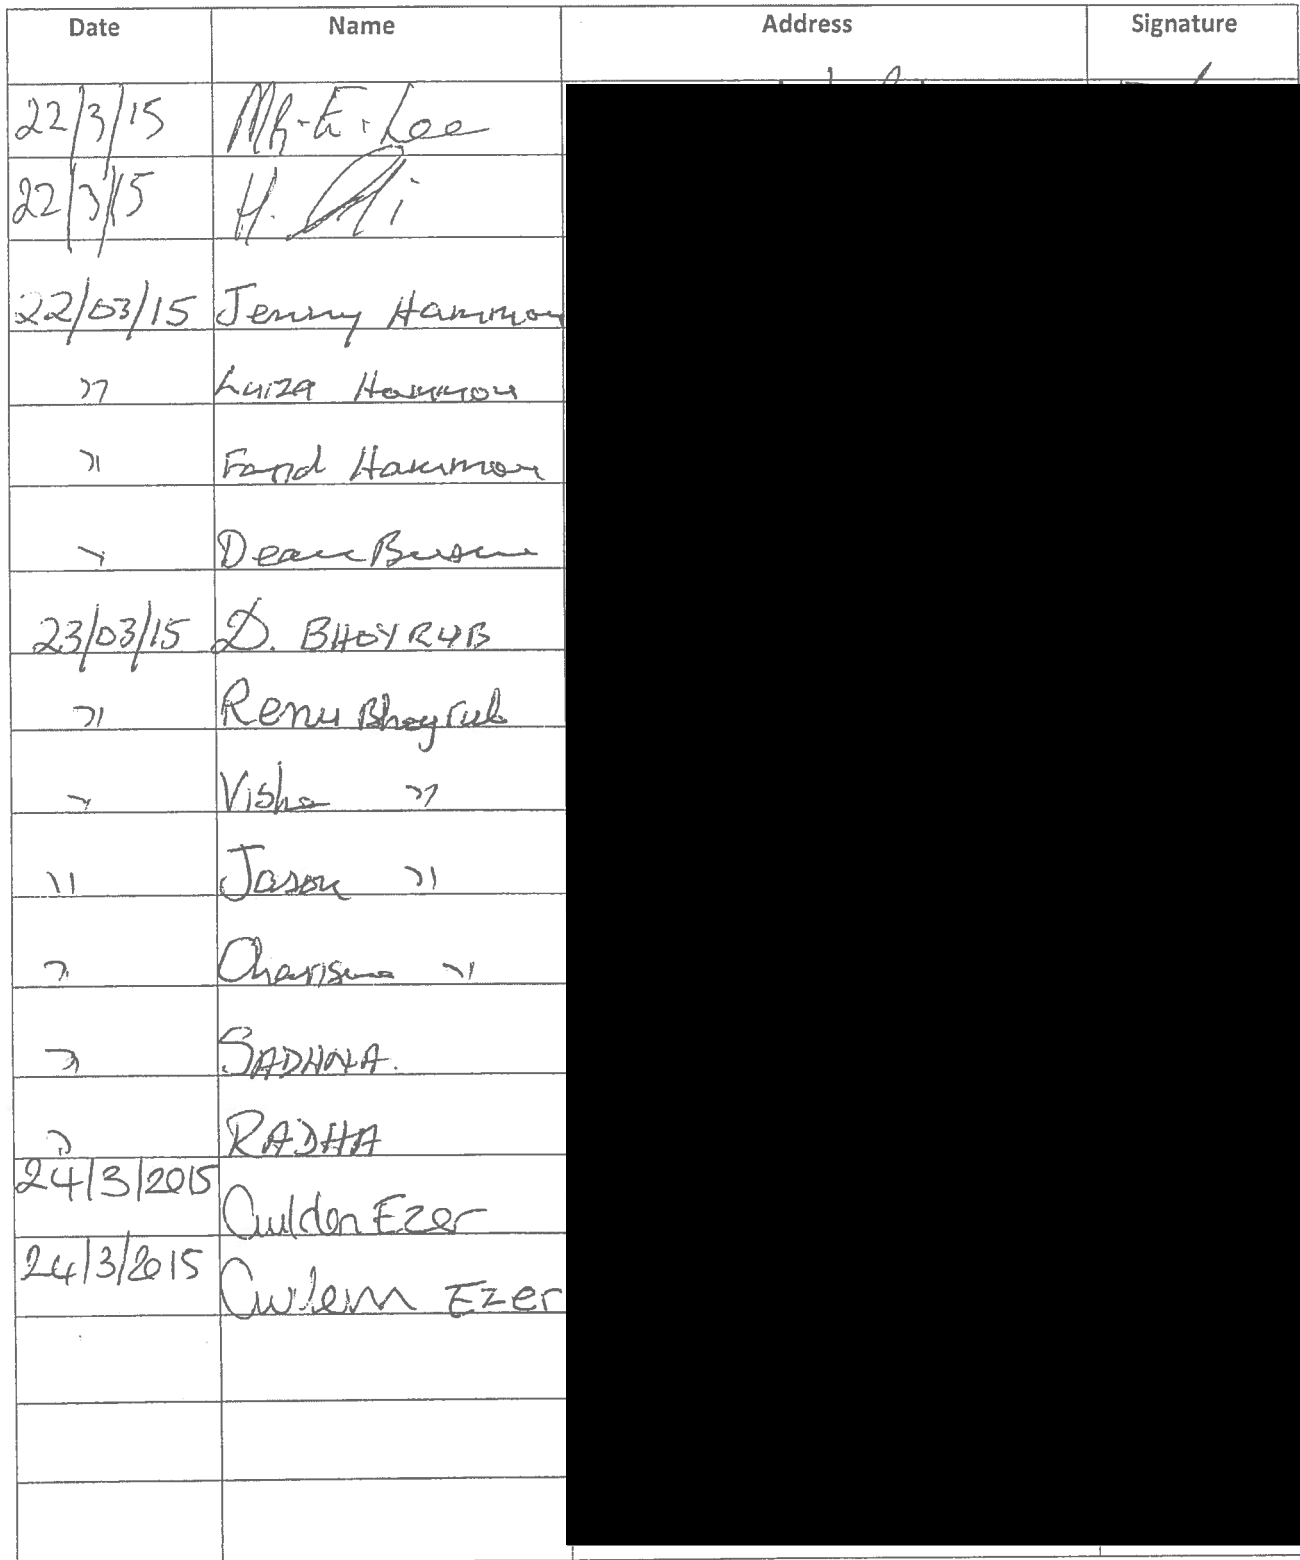 Date Name Address Signature
22/3/15 Mr. E. Lee
22/3/15 H. Ali
22/03/15 Jenny Hammou
" Luiza Hammou
" Farid Hammou
" Deane
23/03/15 D. BHOYRUB
" Renu Bhoyrub
" Visha "
" Jason "
" Charisma "
" SADHNA.
" RADHA
24/3/2015 Gulden Ezer
24/3/2015 Ezer